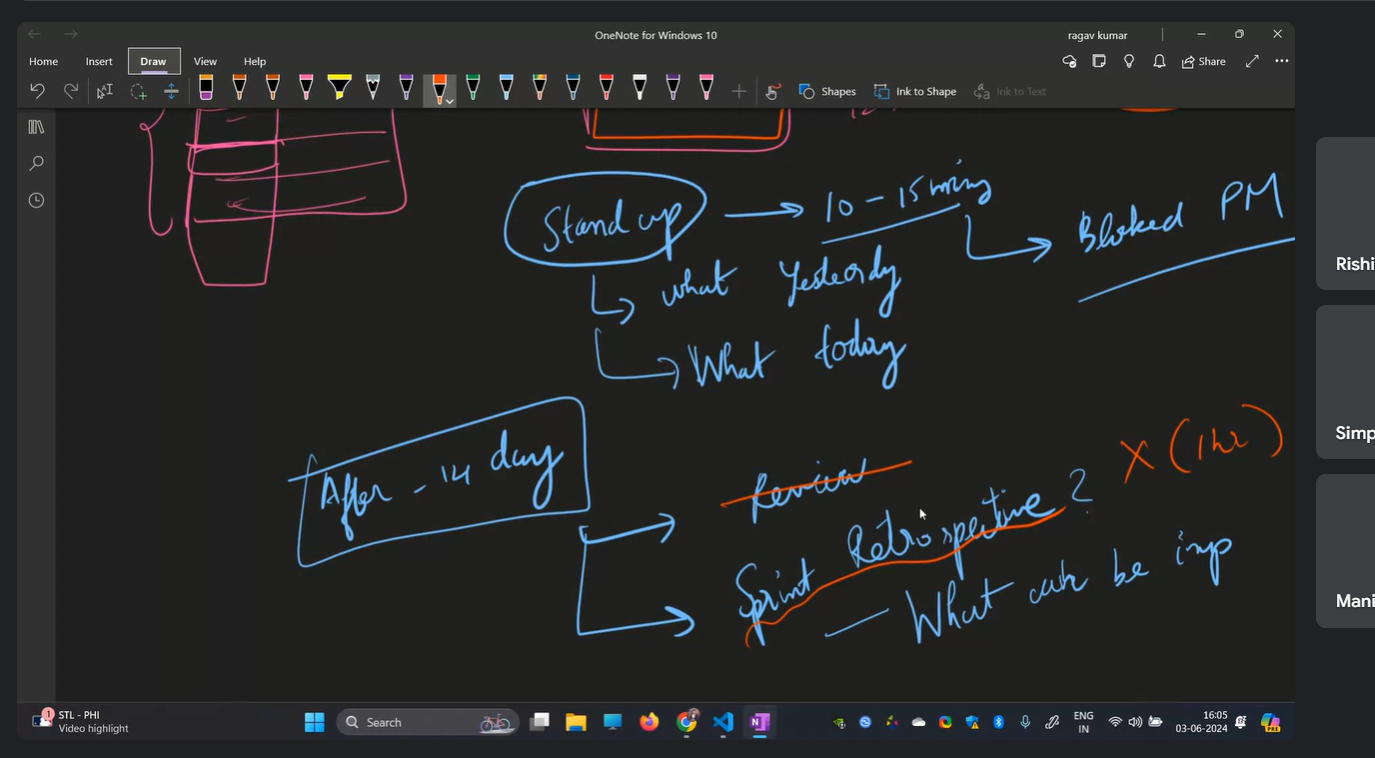 OneNote for Windows 10
ragav kumar
Home Insert Draw View Help
Share
Shapes Ink to Shape Ink to Text
Stand up 10 - 15 mins
Bloked PM
what Yesterdy
What today
After - 14 day
Review
X (1 hr)
Sprint Retrospective ?
- What can be imp
Rishi
Simp
Mani
1
STL - PHI
Video highlight
Search
ENG
IN
16:05
03-06-2024
PRE